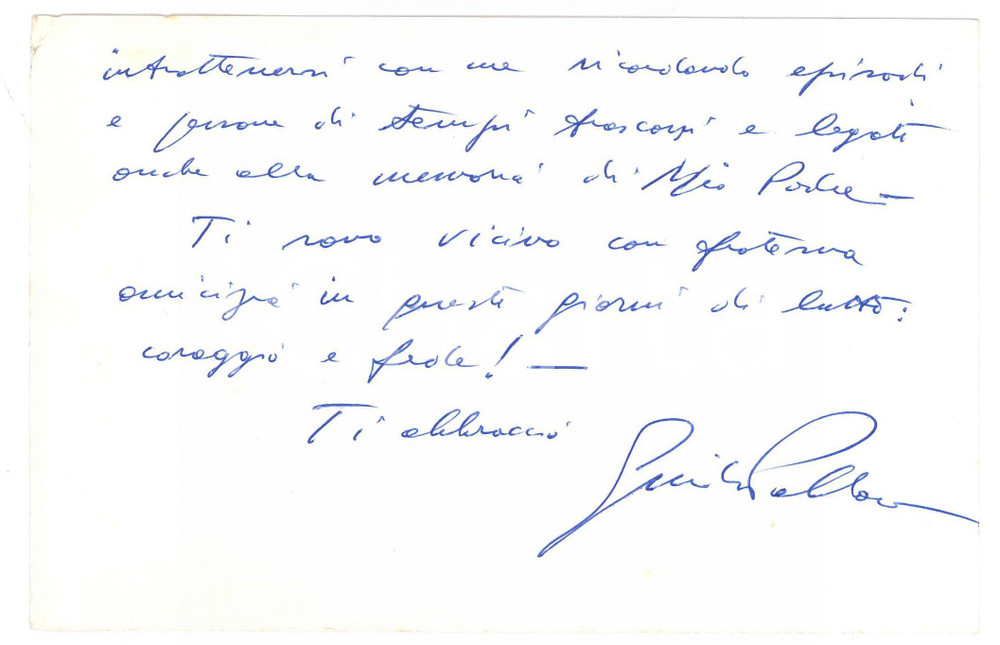 intrattenersi con me ricordando episodi
e persone di tempi trascorsi e legati
anche alla memoria di Mio Padre —
Ti sono vicino con fraterna
amicizia in questi giorni di lutto:
coraggio e fede! —
Ti abbraccio